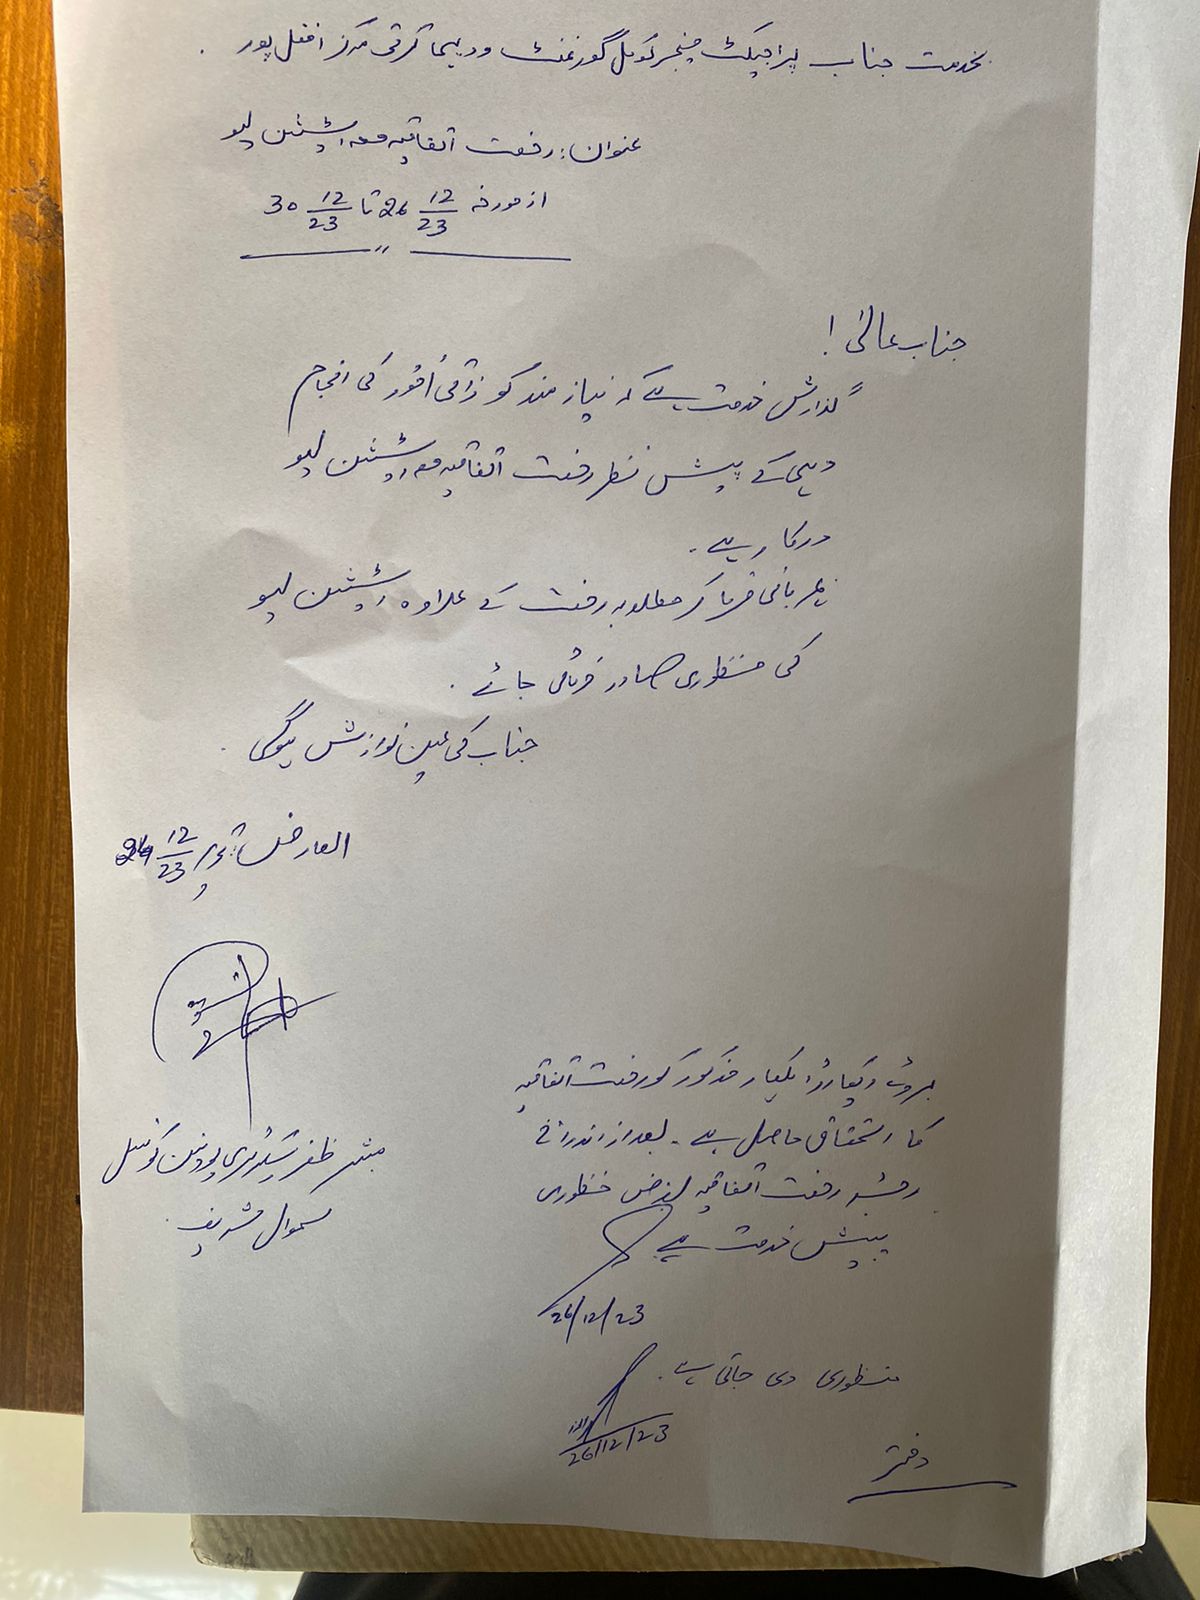 بخدمت جناب پراجیکٹ مینجر لوکل گورنمنٹ و دیہی ترقی مرکز افضل پور
عنوان: رخصت اتفاقیہ معہ اسٹیشن لیو
از مورخہ 26 12/23 تا 30 12/23
جناب عالی!
گذارش خدمت ہے کہ نیاز مند کو ذاتی امور کی انجام
دہی کے پیش نظر رخصت اتفاقیہ معہ اسٹیشن لیو
درکار ہے۔
مہربانی فرما کر مطلوبہ رخصت کے علاوہ اسٹیشن لیو
کی منظوری صادر فرمائی جائے۔
جناب کی عین نوازش ہوگی۔
العارض تحریر 12/23
مبشر ظفر سیکرٹری یونین کونسل
سموال شریف
بروئے ریکارڈ اہلکار مذکور کو رخصت اتفاقیہ
کا استحقاق حاصل ہے۔ بعد از اندراج
رجسٹر رخصت اتفاقیہ بغرض منظوری
پیش خدمت ہے
26/12/23
منظوری دی جاتی ہے۔
26/12/23
دفتر